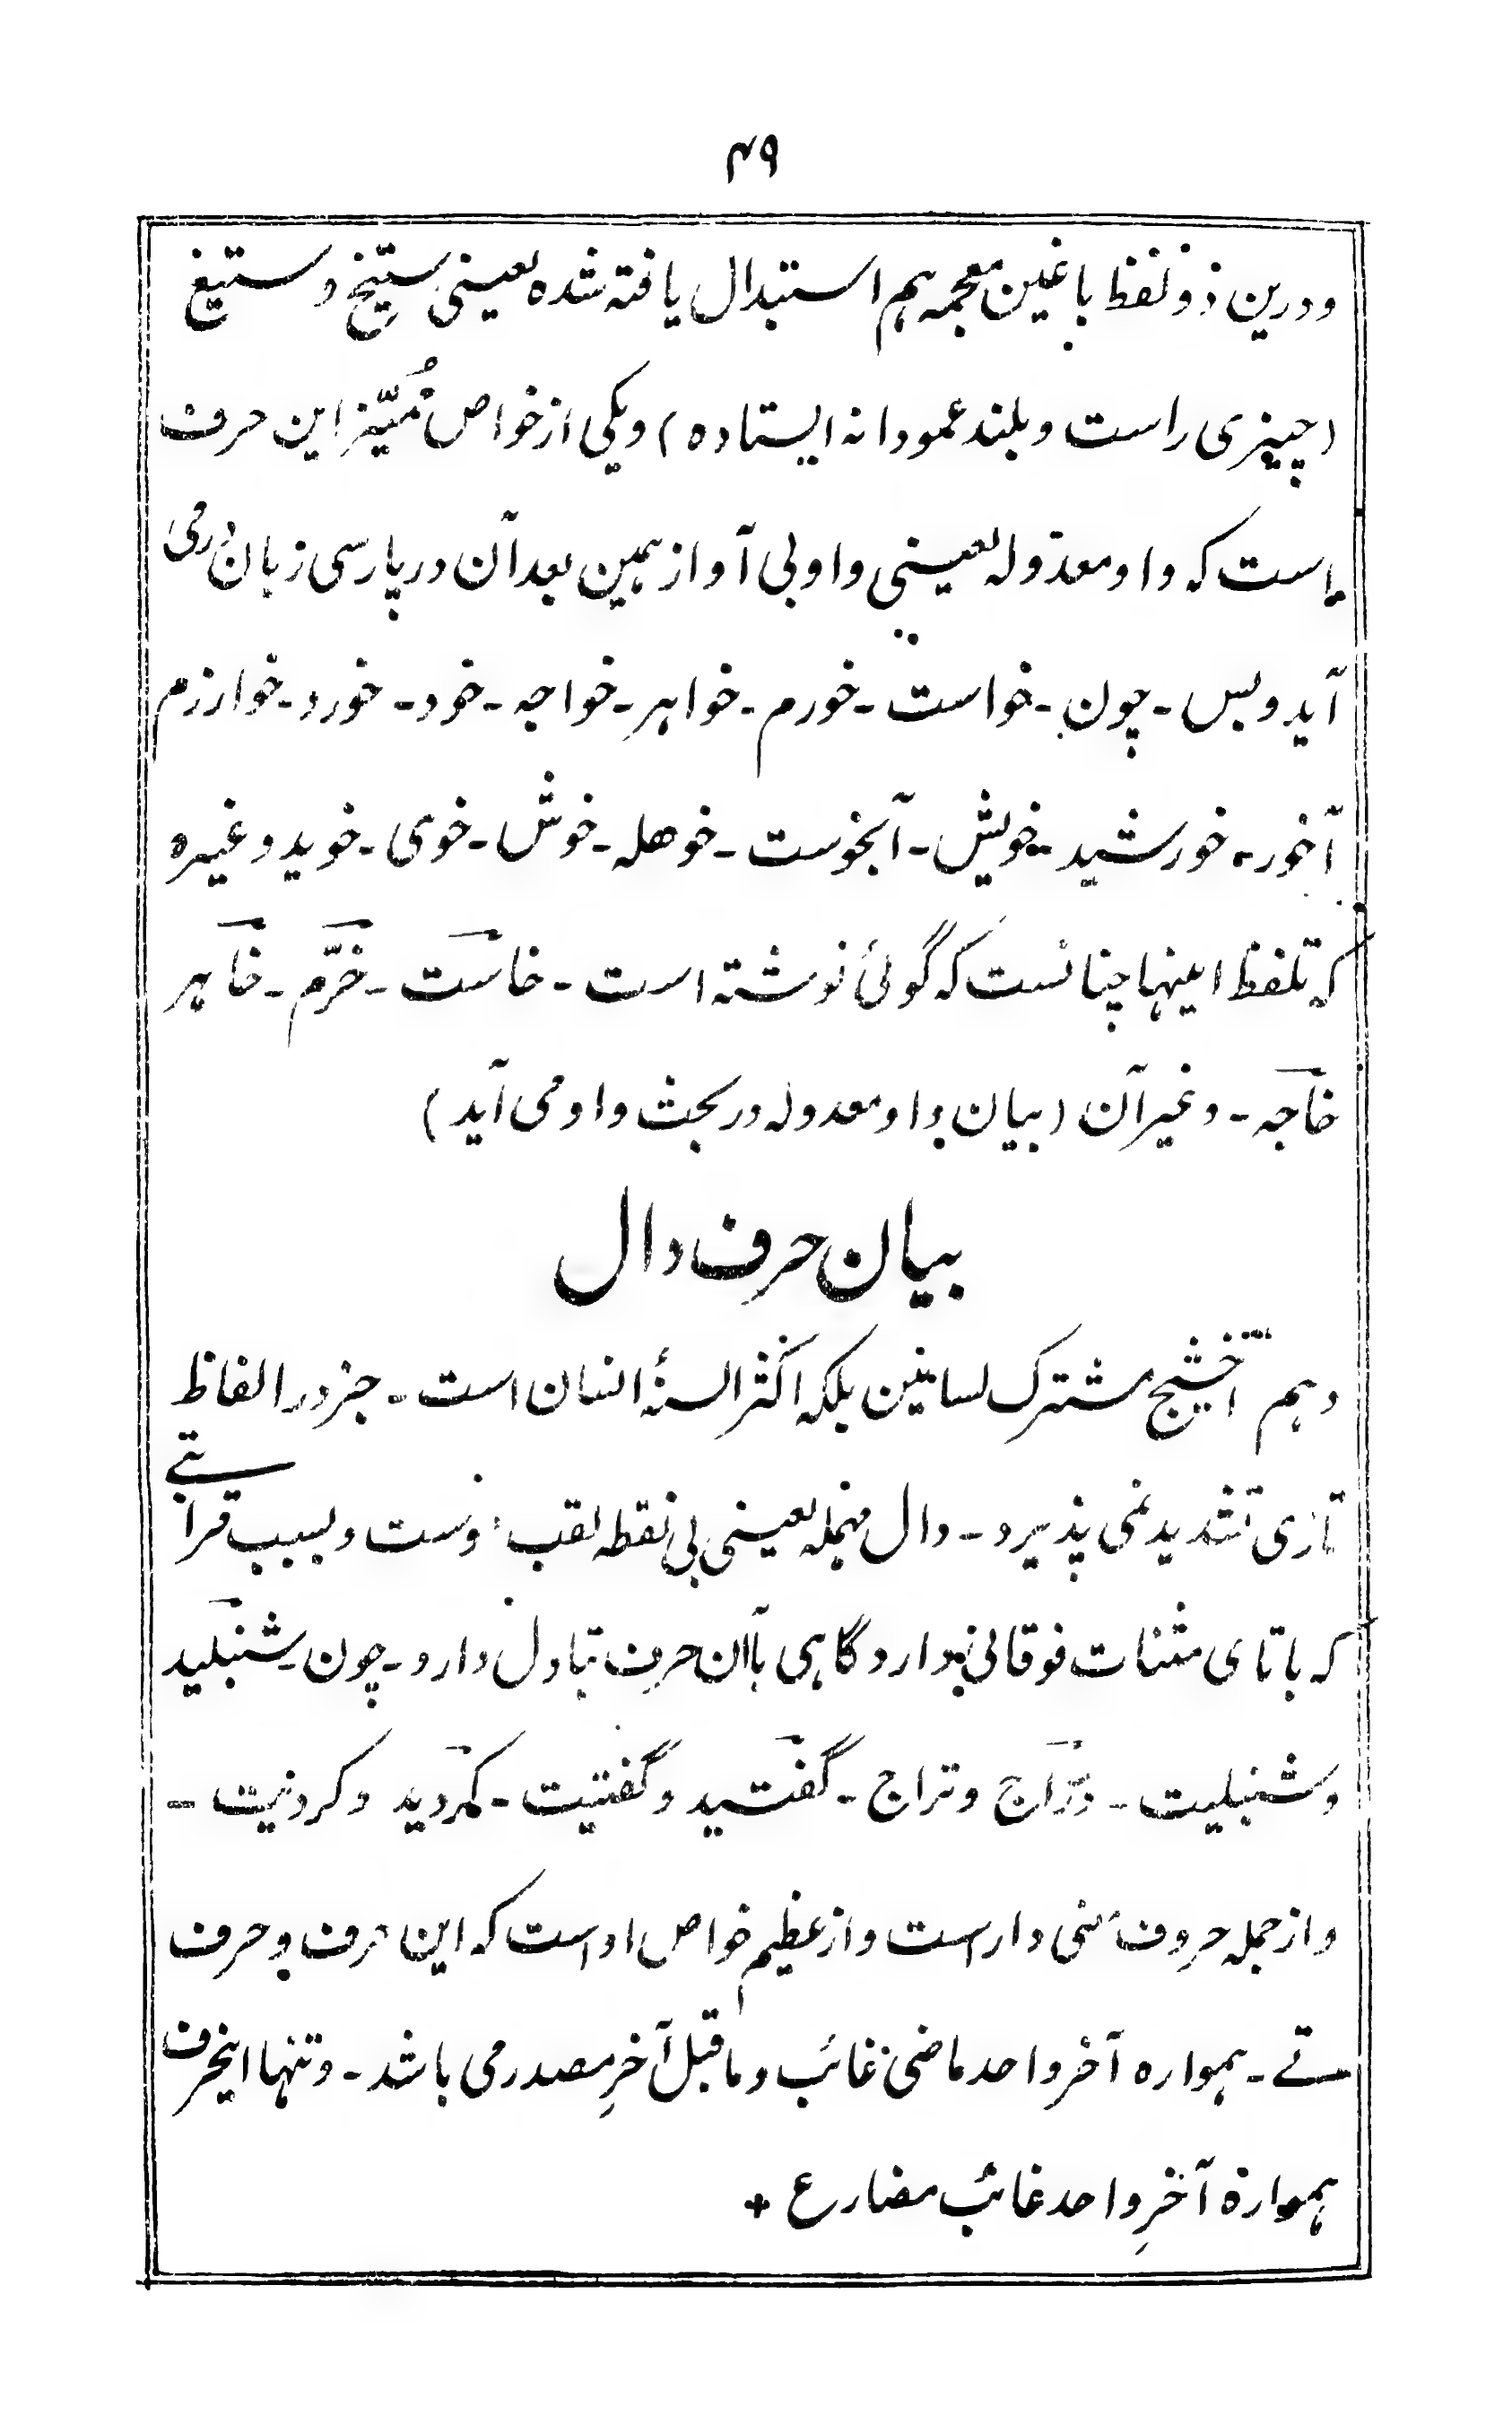 ۴۹
ودرین ذو لفظ با غین معجمه هم استبدال یافته شده یعنی ستیخ و ستیغ
(چیزی راست و بلند عمودانه ایستاده) و یکی از خواص مُمیّز این حرف
است که واو معدوله یعنی واو بی آواز همین بعد آن در پارسی زبان دری
آید و بس - چون - خواست - خورم - خواهر - خواجه - خود - خورد - خوارزم
آخور - خورشید - خویش - آبخوست - خوهله - خوش - خوی - خوید وغیره
که تلفظ اینها چنانست که گوئی نوشته است - خاست - خرّم - خاهر
خاجه - وغیر آن (بیان واو معدوله در بحث واو می آید)
بیان حرف دال
دهم آخشیج مشترک لسانین بلکه اکثر السنهٔ انسان است - جز در الفاظ
تازی تشدید نمی پذیرد - دال مهمله یعنی بی نقطه لقب اوست و بسبب قرابتے
که با تای مثنات فوقانی دارد گاهی باآن حرف تبادل دارد - چون شنبلید
و شنبلیت - درّاج و تراج - گفتید و گفتیت - کردید و کردیت -
و از جمله حروف دار است و از عظیم خواص او است که این حرف و حرف
تے - همواره آخر واحد ماضی غائب و ماقبل آخرِ مصدر می باشد - و تنها اینحرف
همواره آخرِ واحد غائب مضارع +